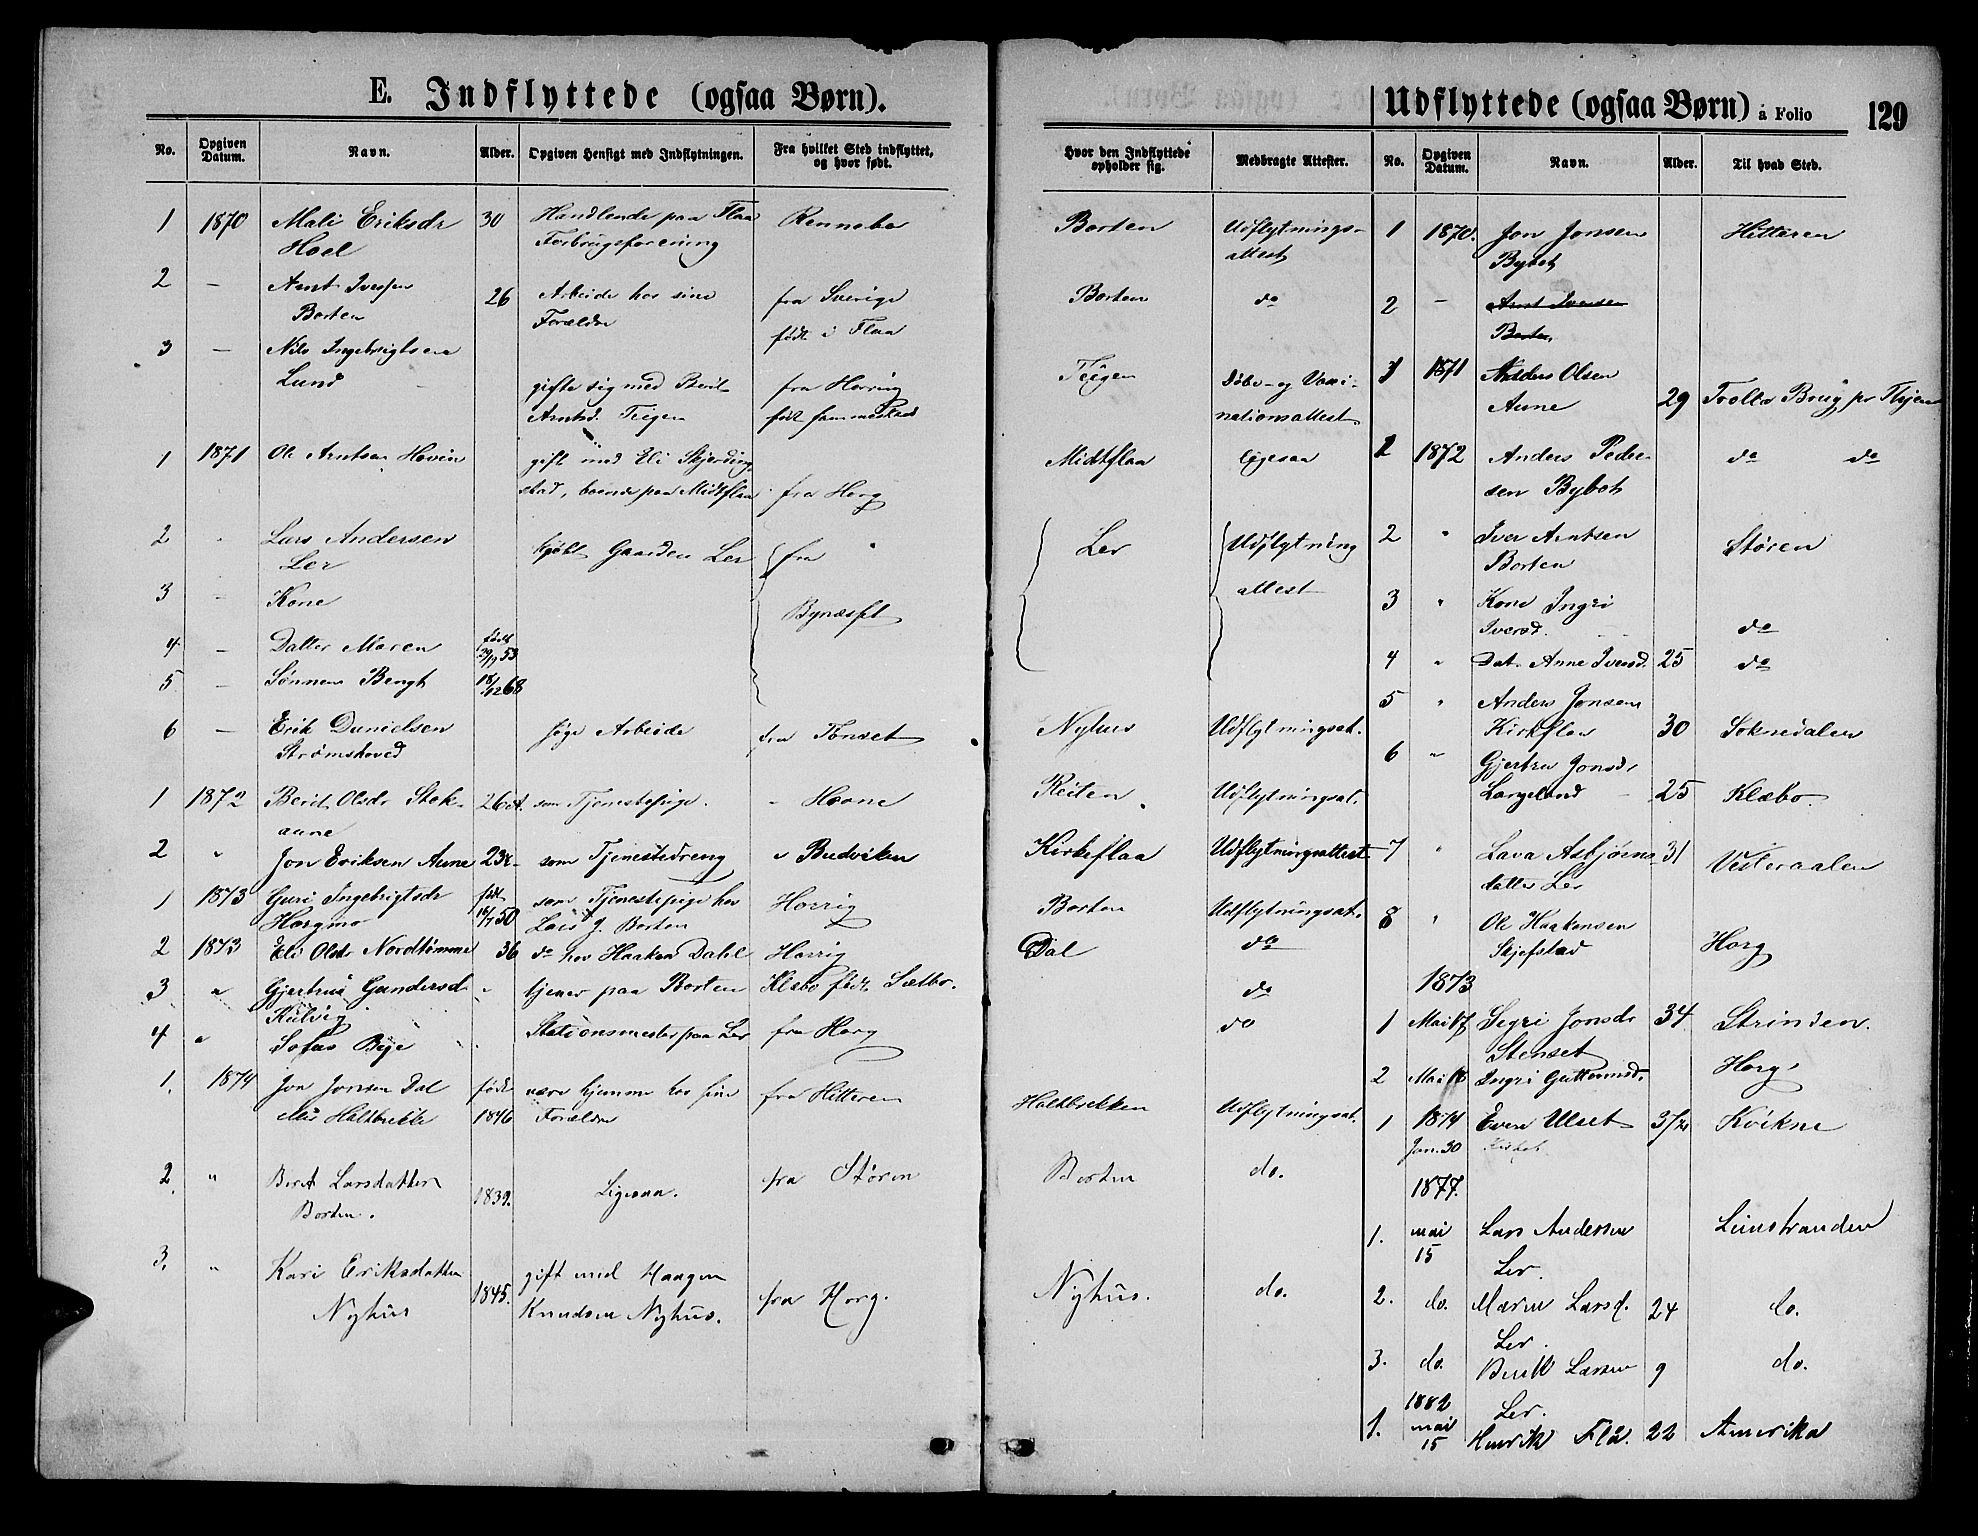 E. Indflyttede (ogsaa Børn).
No. Opgiven Datum. Navn. Alder. Opgiven Hensigt med Indflytningen. Fra hvilket Sted indflyttet, og hvor født.
1 1870 Mali Eriksdr 30 Handlende paa Flaa Rennebo
Hoel Forbrugsforening
2 – Arnt Iversen 26 Arbeide hos sine fra Sverige
Borten Forældre født i Flaa
3 – Nils Ingebrigtsen
Lund gifte sig med Berit fra Horrig
Arntsd. Teigen født sammesteds
1 1871 Ole Arntsen Hovin gift med Eli Skjerding
stad, boende paa Midtflaa fra Horg
2 " Lars Andersen kjøbt Gaarden Ler fra
Ler
3 – Kone Bynæsset
4 – Datter Maren født 29/9 53
5 – Sønnen Bengt 18/12 68
6 – Erik Danielsen søge Arbeide fra Tønset
Strømshoved
1 1872 Berit Olsdr Stok- 26 som Tjenestepige. " Hovne
aune
2 " Jon Eriksen Aune 23 som Tjenestedreng " Budviken
1 1873 Guri Ingebrigtsdr født som Tjenestepige hos Horrig
Horgmo 16/7 50 Lars J. Borten
2 1873 Eli Olsdr Nordtømme 36 do hos Haaken Dahl Horrig
3 " Gjertrud Gundersd " tjener paa Borten Klæbo født Sælbo.
Kulvig
4 " Sofus Bye Stationsmester paa Ler fra Horg
1. 1874 Jon Jonsen Dal født være hjemme hos sine fra Hitteren
Haltbrekke 1846 Forældre
2. " Berit Larsdatter 1839. Ligesaa. fra Støren
Borten.
3. " Kari Eriksdatter 1845. gift med Haagen
Nyhus Knudsen Nyhus. fra Horg.
Udflyttede (ogsaa Børn) å Folio 129
Hvor den Indflyttede opholder sig. Medbragte Attester. No. Opgiven Datum. Navn. Alder. Til hvad Sted.
Borten Udflytnings- 1 1870. Jon Jonsen Hitteren
attest Bybot
Borten do 2 – Arnt Iversen
Borten
Teigen Døbe- og Vaxi- 1 1871 Anders Olsen
nationsattest Aune 29 Trolla Brug pr Thjem
Midtflaa ligesaa 1 1872 Anders Peder- do do
sen Bybot
Ler Udflytning 2 " Iver Arntsen Støren
attest Borten
3 " Kone Ingri
Iversd. do
4 " Dat. Anne Iversd. 25 do
5 " Anders Jonsen
Nyhus Udflytningsat. Kirkflaa 30 Soknedalen
6 " Gjertru Jonsdr
Reiten Udflytningsat. Langeland 25 Klæbo.
Kirkeflaa Udflytningsattest 7 " Lava Asbjørns 31 Vesteraalen
datter Ler
Borten Udflytningsat. 8 " Ole Haakensen
Dal do Skjefstad Horg
do 1873
do 1 Mai 17 Segri Jonsdr 34 Strinden.
Stenset
2 Mai 18 Ingri Guttormsd. Horg
Haltbrekken Udflytningsat. 1 1874 Even Ulset 31/2 Kvikne
Jan. 30
Borten do. 1877.
1. mai 15 Lars Andersen Leinstranden
Ler.
Nyhus. do. 2. do. Maren Larsd. 24 do.
Ler.
3. do. Bendt Larsen 9 do.
Ler.
1882
1. mai 15 Henrik Flå. 22 Amerika